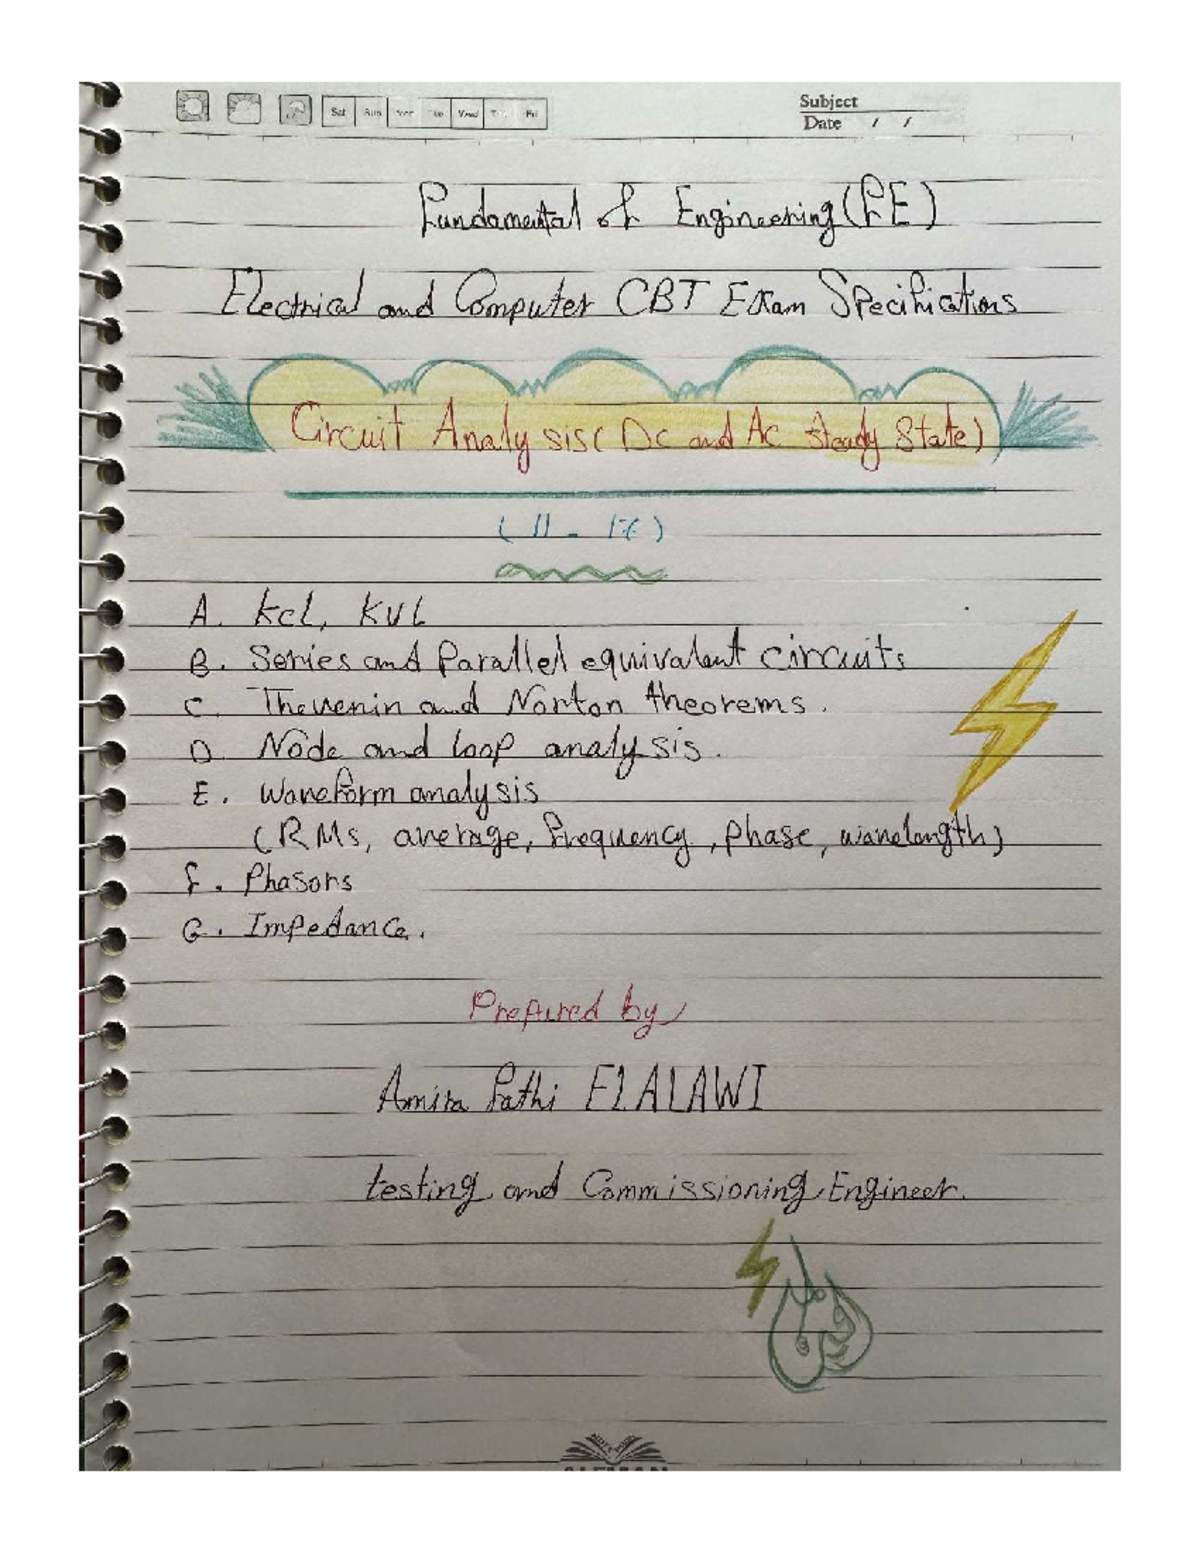 Sat Sun Mon Tue Wed Thu Fri
Subject
Date / /
Fundamental of Engineering (FE)
Electrical and Computer CBT Exam Specifications
Circuit Analysis ( Dc and Ac steady State)
( 11 - 17 )
A. kcL, KVL
B. Series and Parallel equivalent circuits
C. Thevenin and Norton theorems.
D. Node and loop analysis.
E. Waveform analysis
(RMs, average, frequency, phase, wavelength)
F. Phasors
G. Impedance.
Prepared by
Amira Fathi ELALAWI
testing and Commissioning Engineer.